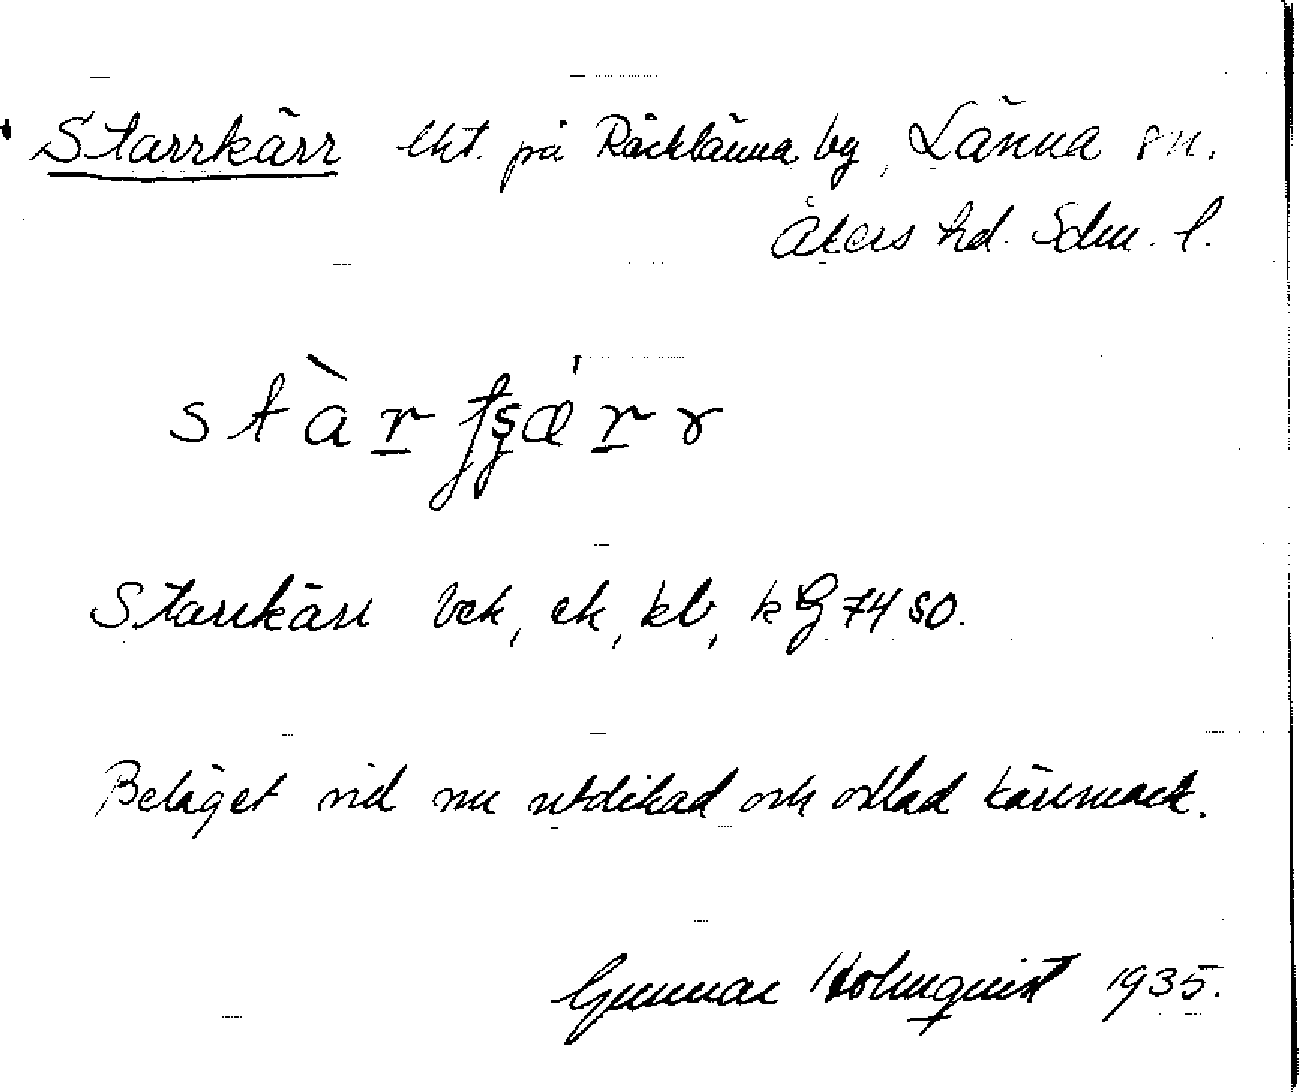 Starrkärr lht. på Räcklänna by, Länna sn.
Åkers hd. Sdm. l.
Starrkärr bek, ek, kb, kG 74 SO.
Beläget vid nu utdikad och odlad kärrmark.
Gunnar Holmquist 1935.